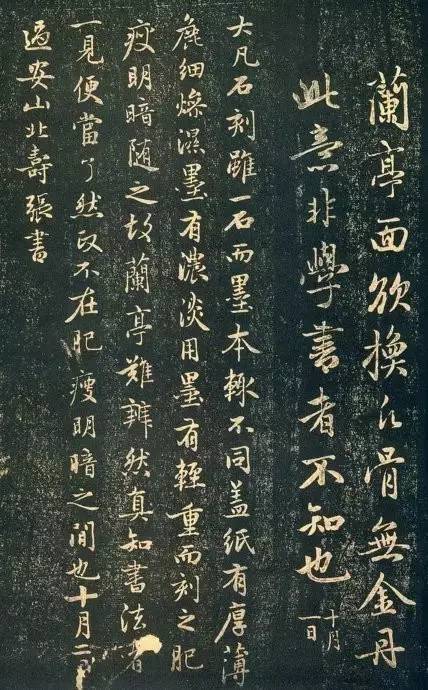 蘭亭面欲換凡骨無金丹
此意非學書者不知也十月一日
大凡石刻雖一石而墨本輒不同盖紙有厚薄
麁細燥濕墨有濃淡用墨有輕重而刻之肥
瘦明暗随之故蘭亭難辨然真知書法者
一見便當了然政不在肥瘦明暗之間也十月二日
過安山北壽張書